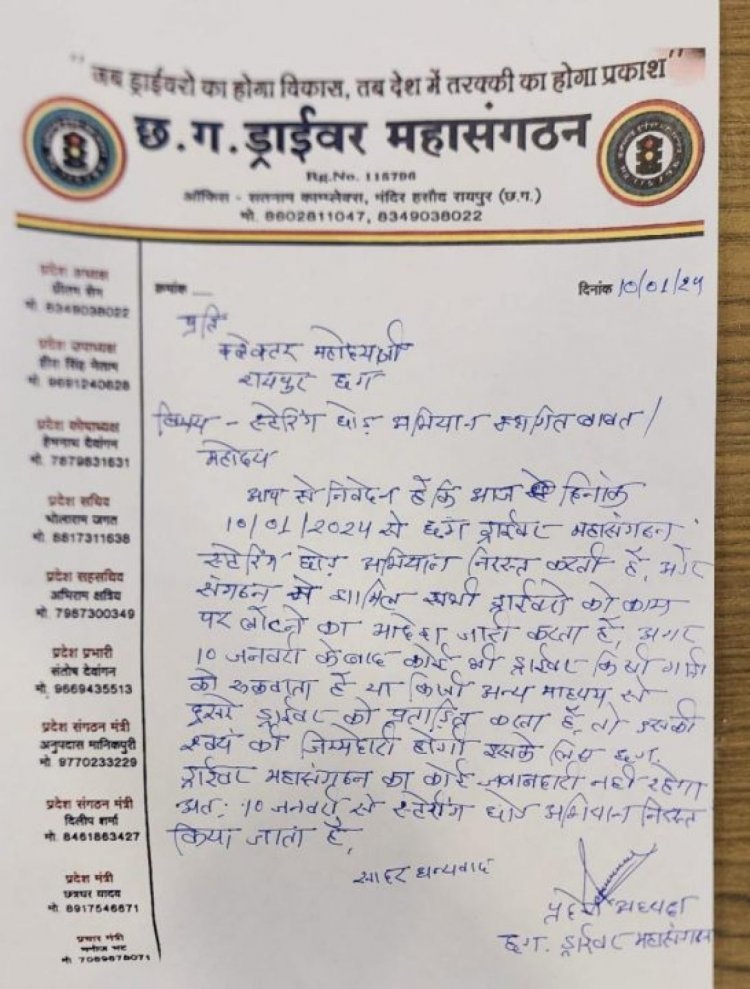 "जब ड्राईवरो का होगा विकास, तब देश में तरक्की का होगा प्रकाश"
छ.ग.ड्राईवर महासंगठन
Rg.No. 115796
ऑफिस - सतनाम काम्प्लेक्स, मंदिर हसौद रायपुर (छ.ग.)
मो. 8602811047, 8349038022
क्रमांक
दिनांक 10/01/24
प्रदेश अध्यक्ष
प्रीतम सेन
मो. 8349038022
प्रदेश उपाध्यक्ष
सिंह नेताम
मो. 9691240628
प्रदेश कोषाध्यक्ष
हेमनाथ देवांगन
मो. 7879831631
प्रदेश सचिव
भोलाराम जगत
मो. 8817311638
प्रदेश सहसचिव
अभिराम क्षत्रिय
मो. 7987300349
प्रदेश प्रभारी
संतोष देवांगन
मो. 9669435513
प्रदेश संगठन मंत्री
अनुपदास मानिकपुरी
मो. 9770233229
प्रदेश संगठन मंत्री
दिलीप शर्मा
मो. 8461863427
प्रदेश मंत्री
छत्रधर यादव
मो. 8917546671
प्रचार मंत्री
मनोज भट
मो. 7089878071
प्रति
कलेक्टर महोदय श्री
रायपुर छग
विषय - स्टेरिंग छोड़ अभियान स्थगित बाबत /
महोदय
आप से निवेदन हैं कि आज दिनांक
10/01/2024 से छग ड्राईवर महासंगठन
स्टेरिंग छोड़ अभियान निरस्त करती हैं, और
संगठन मे शामिल सभी ड्राईवरो को काम
पर लौटने का आदेश जारी करता हैं, अगर
10 जनवरी के बाद कोई भी ड्राईवर किसी गाड़ी
को रुकवाता हैं या किसी अन्य माध्यम से
दुसरे ड्राईवर को प्रताड़ित करता हैं, तो उसकी
स्वयं की जिम्मेदारी होगी इसके लिए छग
ड्राईवर महासंगठन का कोई जवाबदारी नही रहेगा
अत: 10 जनवरी से स्टेरिंग छोड़ अभियान निरस्त
किया जाता हैं,
सादर धन्यवाद
प्रदेश अध्यक्ष
छग. ड्राईवर महासंगठन